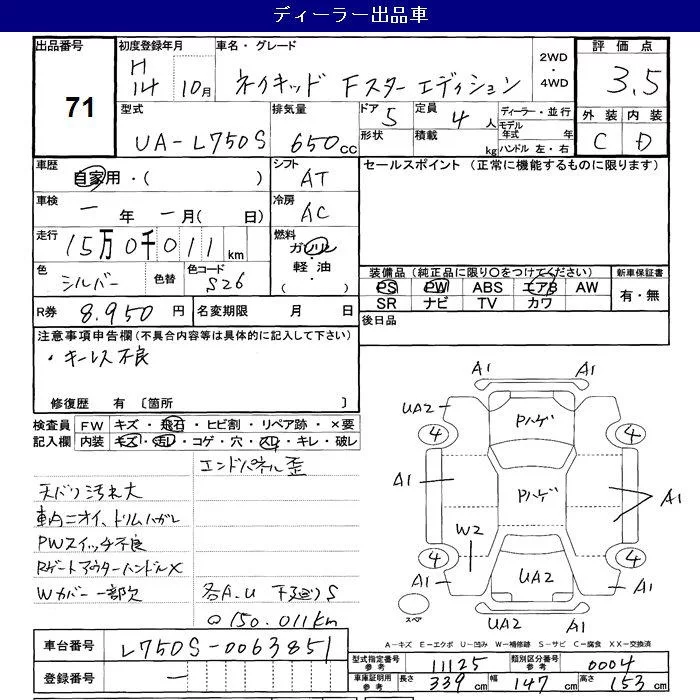 ディーラー出品車
出品番号 初度登録年月 車名・グレード 評価点
71 H14 10月 ネイキッド Fスターエディション 2WD・4WD 3.5
型式 排気量 ドア 5 定員 4人 ディーラー・並行 外装 内装
UA-L750S 650cc 形状 積載 kg モデル年式 年 ハンドル 左・右 C D
車歴 自家用・( ) シフト AT セールスポイント (正常に機能するものに限ります)
車検 一年 一月( 日) 冷房 AC
走行 15万0千011km 燃料 ガソリン・軽油・( )
色 シルバー 色替 色コード S26 装備品 (純正品に限り○をつけてください) 新車保証書
PS PW ABS エアB AW 有・無
SR ナビ TV カワ
R券 8.950円 名変期限 月 日 後日品
注意事項申告欄(不具合内容等は具体的に記入して下さい)
・キーレス不良
修復歴 有 〔箇所 〕
検査員記入欄 FW キズ・飛石・ヒビ割・リペア跡・×要
内装 キズ・汚レ・コゲ・穴・スレ・キレ・破レ
エンドパネル歪
天バリ汚れ大
車内ニオイ、トリムハガレ
PWスイッチ不良
RゲートアウターハンドルX
Wカバー一部欠 各A.U 下廻りS
Q150.011Km
A1 A1
UA2 Pハゲ
4 4
A1 Pハゲ A1
W2
4 4
A1 UA2 A1
スペア UA2 A1
A-キズ E-エクボ U-凹み W-補修跡 S-サビ C-腐食 XX-交換済
車台番号 L750S-0063851
型式指定番号 参考 11125 類別区分番号 参考 0004
登録番号 一 車庫証明用 参考 長さ 339cm 幅 147cm 高さ 153cm